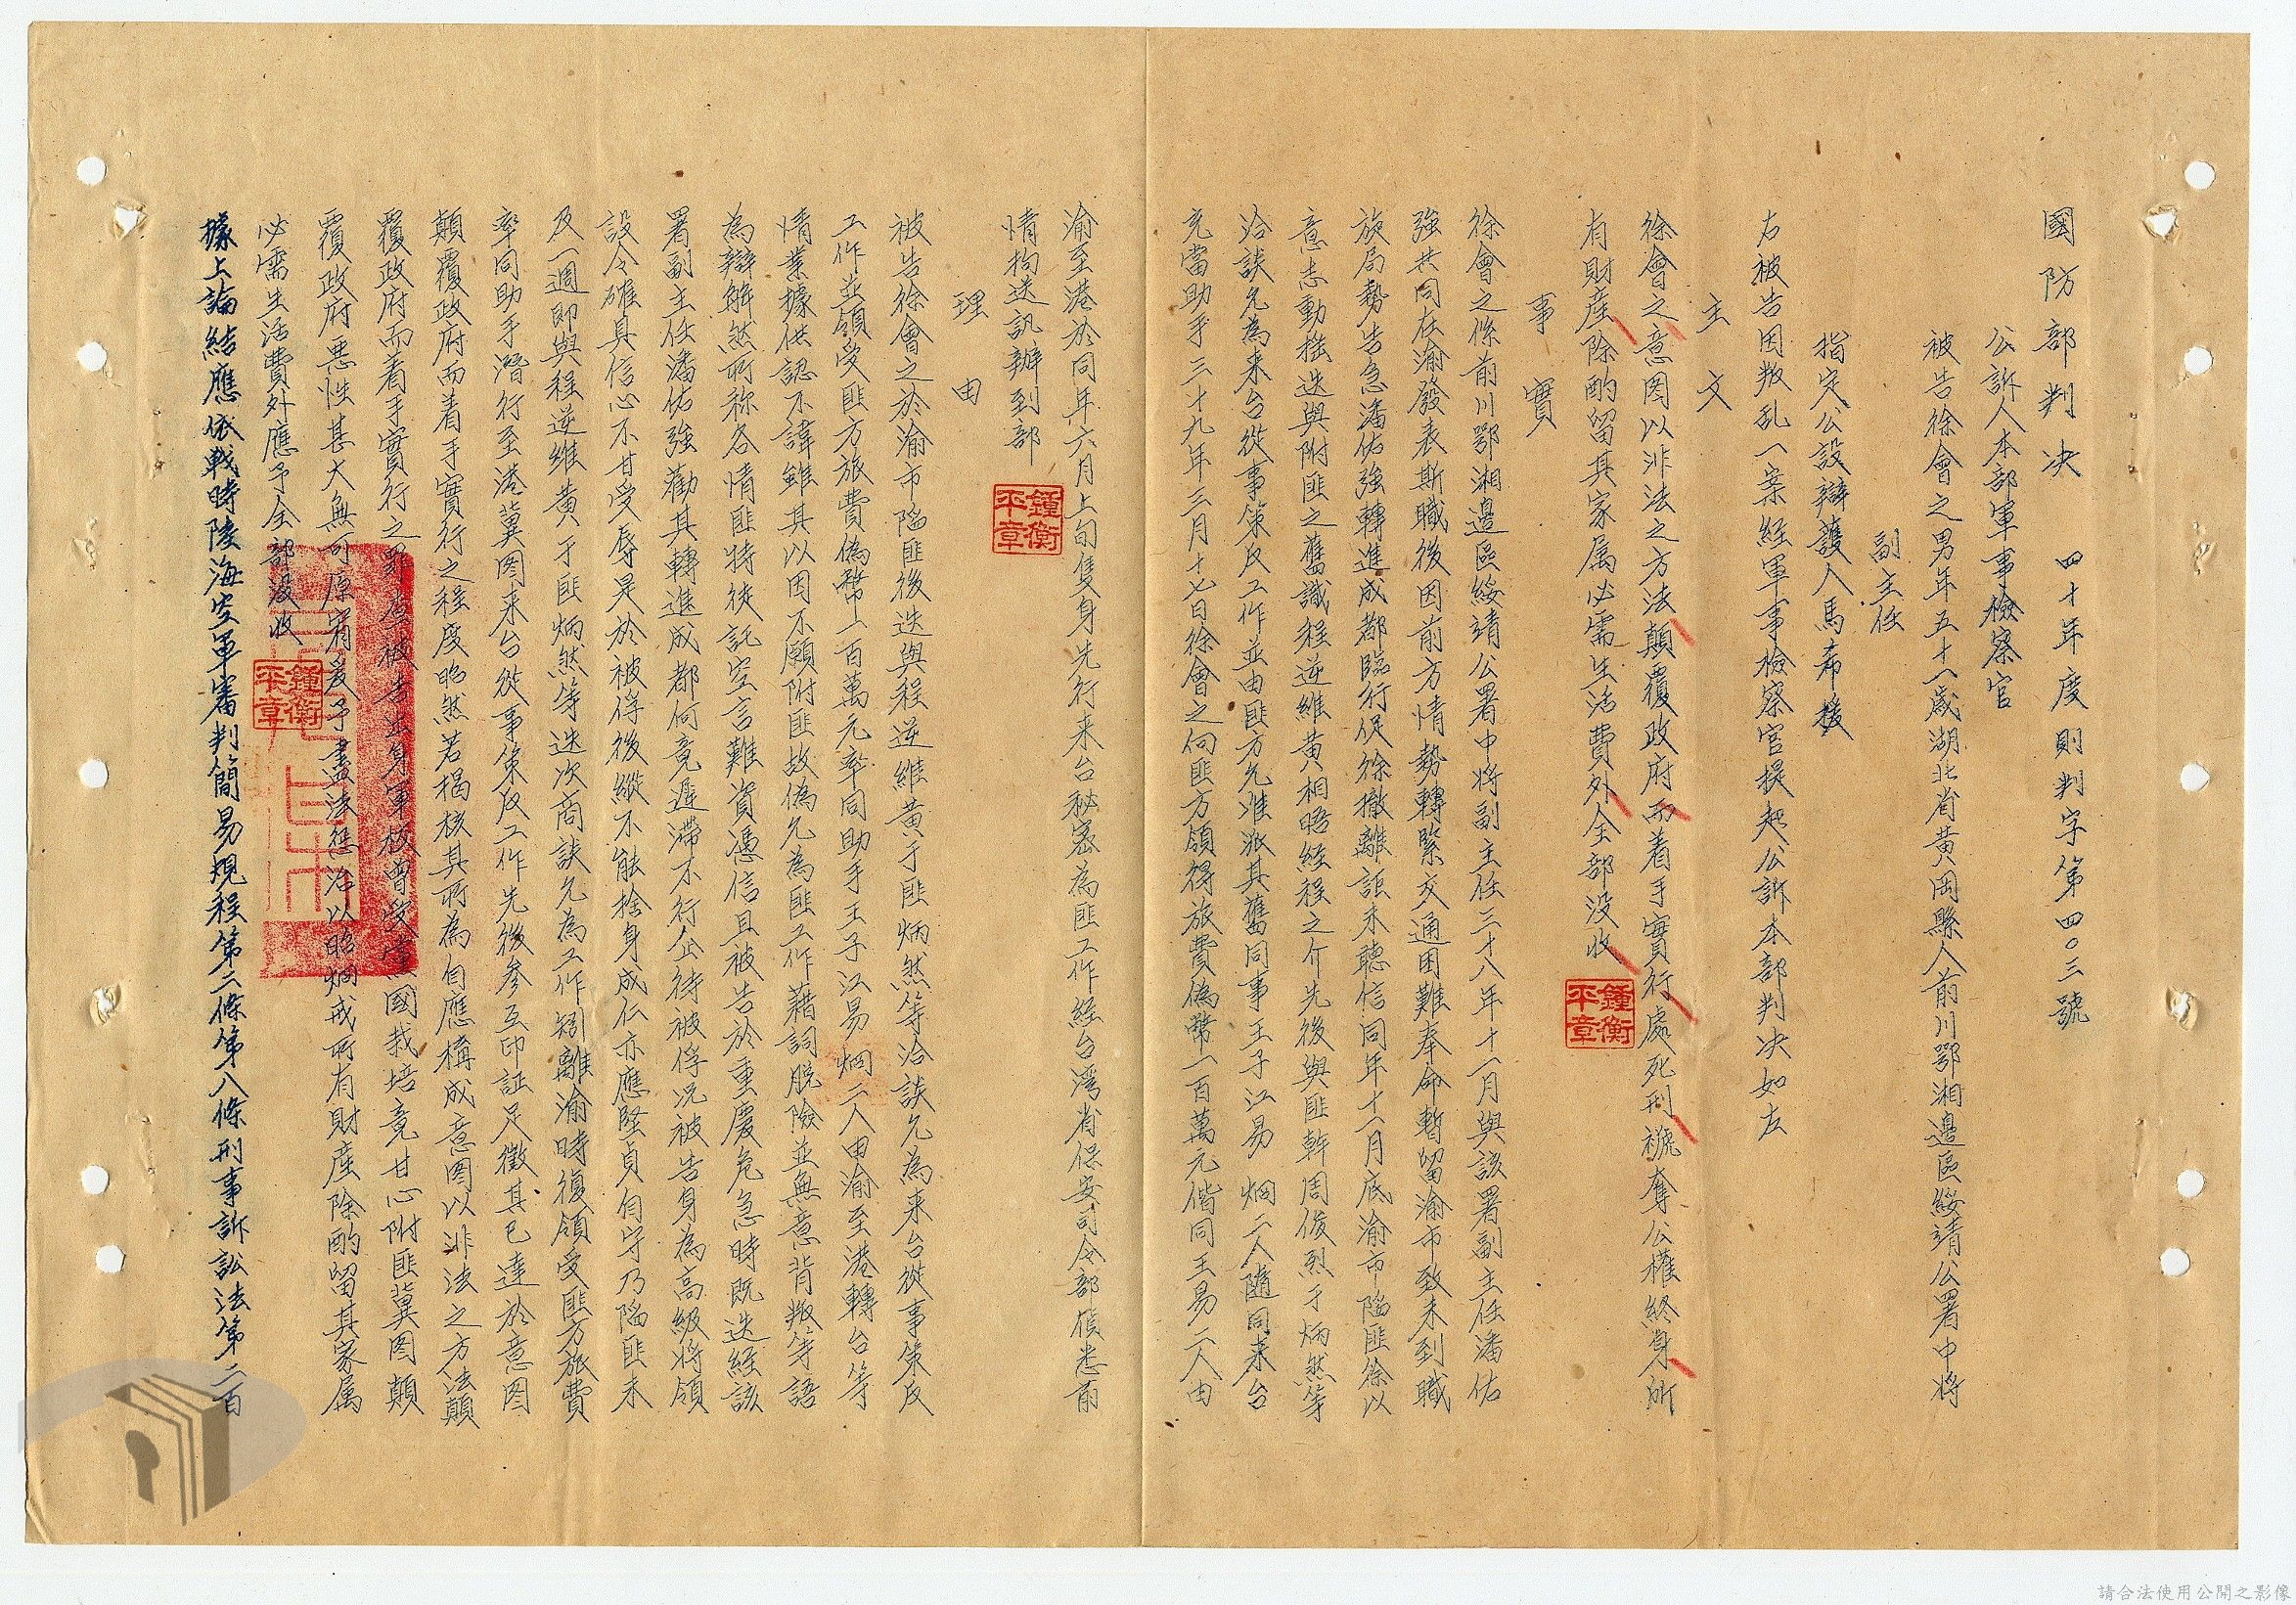 國防部判決　四十年度則判字第四〇三號
公訴人本部軍事檢察官
被告徐會之男年五十一歲湖北省黃岡縣人前川鄂湘邊區綏靖公署中將
副主任
指定公設辯護人馬希援
右被告因叛乱一案経軍事檢察官提起公訴本部判決如左
主文
徐會之意图以非法之方法顛覆政府而着手實行處死刑褫奪公權終身所
有財產除酌留其家属必需生活費外全部沒收
事實
徐會之係前川鄂湘邊區綏靖公署中將副主任三十八年十一月與該署副主任潘佑
強共同在渝發表斯職後因前方情勢轉緊交通困難奉命暫留渝市致未到職
旋局勢告急潘佑強轉進成都臨行促徐撤離詎未聽信同年十一月底渝市陷匪徐以
意志動搖迭與附匪之舊識程逆維黃相晤経程之介先後與匪幹周俊烈于炳然等
洽談允為來台從事策反工作並由匪方允准派其舊同事王子江易烱二人隨同來台
充當助手三十九年三月十七日徐會之向匪方領得旅費偽幣一百萬元偕同王易二人由
渝至港於同年六月上旬隻身先行來台秘密為匪工作経台湾省保安司令部偵悉前
情拘送訊辦到部
理由
被告徐會之於渝市陷匪後迭與程逆維黃于匪炳然等洽談允為來台從事策反
工作並領受匪方旅費偽幣一百萬元率同助手王子江易烱二人由渝至港轉台等
情業據供認不諱雖其以因不願附匪故偽允為匪工作藉詞脫險並無意背叛等語
為辯解然所称各情匪特徒託空言難資憑信且被告於重慶危急時既迭経該
署副主任潘佑強勸其轉進成都何竟遲滯不行坐待被俘况被告身為高級將領
設令確具信心不甘受辱是於被俘後縱不能捨身成仁亦應堅貞自守乃陷匪未
及一週即與程逆維黃于匪炳然等迭次商談允為工作矧離渝時復領受匪方旅費
率同助手潛行至港冀图來台從事策反工作先後參互印証足徵其已達於意图
顛覆政府而着手實行之程度昭然若揭核其所為自應構成意图以非法之方法顛
覆政府而着手實行之罪查被告出身軍校曾受黨國栽培竟甘心附匪冀图顛
覆政府惡性甚大無可原宥爰予盡法懲治以昭烱戒所有財產除酌留其家属
必需生活費外應予全部沒收
據上論結應依戰時陸海空軍審判簡易規程第二條第八條刑事訴訟法第二百
鍾衡平章
鍾衡平章
鍾衡平章
請合法使用公開之影像